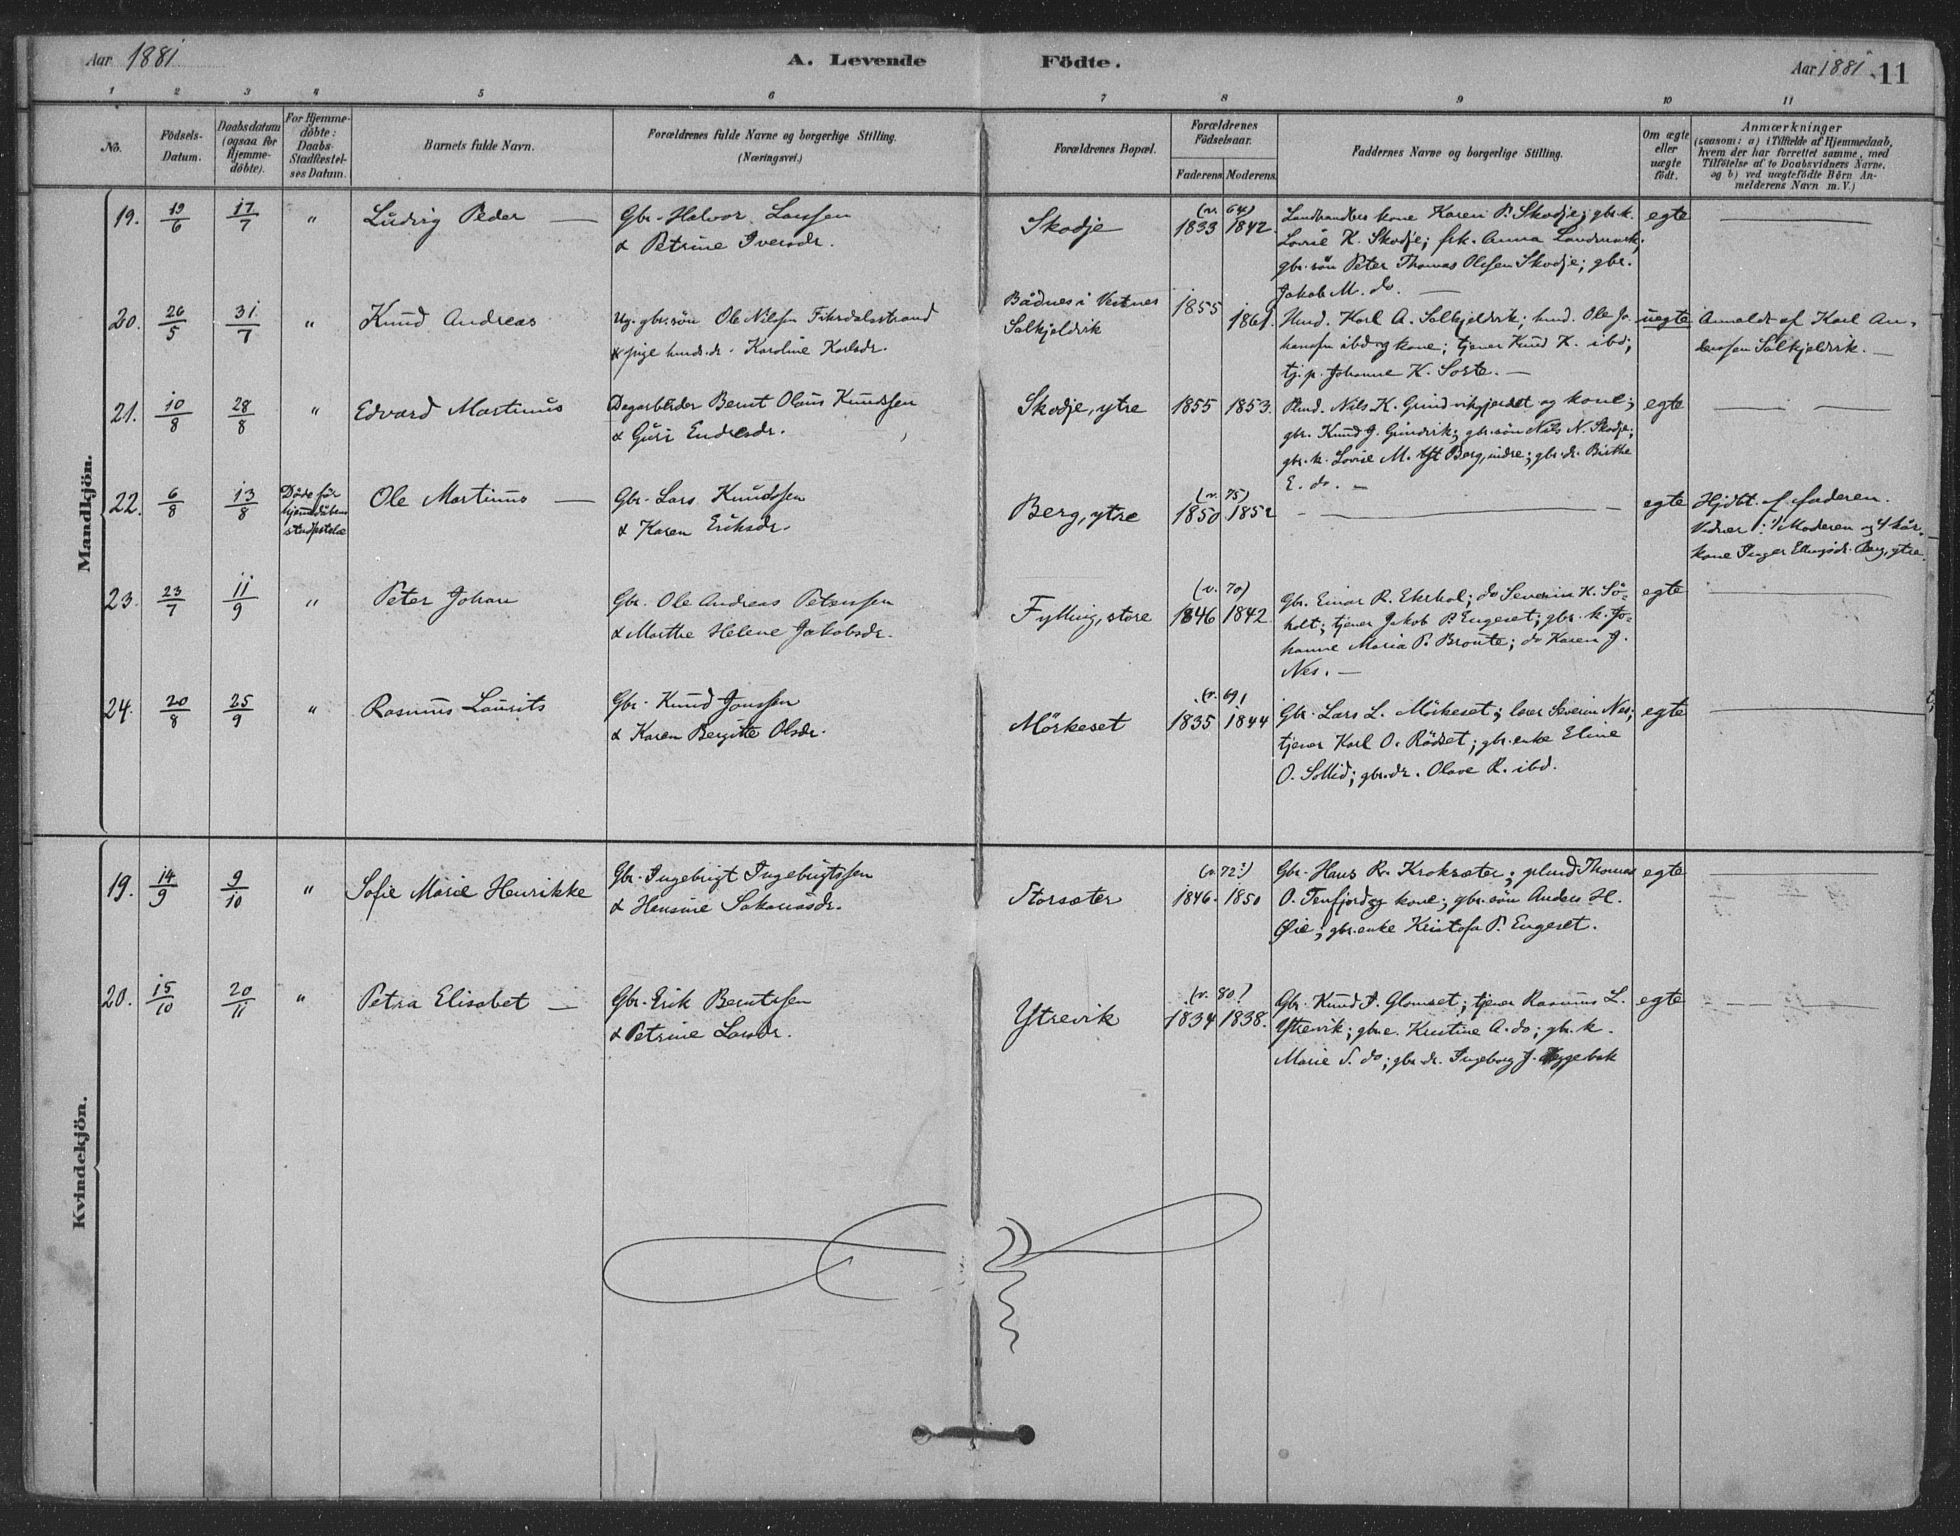 Aar 1881
A. Levende
Födte.
Aar 1881 11
1 2 3 4 5 6 7 8 9 10 11
No.
Födsels-
Datum.
Daabsdatum
(ogsaa for
Hjemme-
döbte).
For Hjemme-
döbte:
Daabs-
Stadfæstel-
ses Datum.
Barnets fulde Navn.
Forældrenes fulde Navne og borgerlige Stilling.
(Næringsvei.)
Forældrenes Bopæl.
Forældrenes
Födselsaar.
Faderens. Moderens.
Faddernes Navne og borgerlige Stilling.
Om ægte
eller
uægte
födt.
Anmærkninger
(saasom: a) i Tilfælde af Hjemmedaab,
hvem der har forrettet samme, med
Tilföielse af to Daabsvidners Navne,
og b) ved uægtefödte Börn An-
melderens Navn m. V.)
Mandkjön.
19. 19/6 17/7 " Ludvig Peder —
Gbr. Halvor Larssen
& Petrine Iversdr.
Skodje
(v. 64)
1833 1842.
Landhandlers kone Karen P. Skodje; gbr.k.
Lovise K. Skodje; frk. Anna Landmark;
gbr.sön Peter Thomas Olessen Skodje; gbr.
Jakob M. do. —
egte
20. 26/5 31/7 " Knud Andreas
Ug. gbr.sön Ole Nilssen Fiksdalsstrand
& pige husm.dr. Karoline Karlsdr.
Bådnes i Vestnes
Solkjeldvik
1855 1861.
Husd. Karl A. Solkjeldvik; husd. Ole Jo-
hanssen ibd og kone; tjener Knud K. ibd;
tj. p. Johanne K. Sorte. —
uegte
Anmeldt af Karl An-
derssen Solkjeldvik. —
21. 10/8 28/8 " Edvard Martinus
Dagarbeider Bernt Olaus Knudssen
& Guri Endresdr.
Skodje, ytre
1855 1853.
Plsd. Nils K. Grindvikgjerdet og kone;
gbr. Knud J. Grindvik; gbr.sön Nils N. Skodje;
gbr. k. Lovise M. Berg, indre; gbr. dr. Birthe
E. do. —
egte
22. 6/8 13/8 Döde för
hjemmedåbens
stadfæstelse
Ole Martinus —
Gbr. Lars Knudssen
& Karen Eriksdr.
Berg, ytre
(v. 75)
1850 1852
egte
Hjdöbt. af faderen.
Vidner: Moderen og kår-
kone Inger Ellingsdr. Berg, ytre.
23. 23/7 11/9 " Peter Johan
Gbr. Ole Andreas Peterssen
& Marthe Helene Jakobsdr.
Fylling, store
(v. 70)
1846 1842
Gbr. Einar R. Ekrhol; do Severin K. Sö-
holt; tjener Jakob P. Engeset; gbr. k. Jo-
hanne Maria P. Braute; do Karen J.
Nes. —
egte
24. 20/8 25/9 " Rasmus Laurits
Gbr. Knud Jonssen
& Karen Bergitte Olsdr.
Mörkeset
(v. 69)
1835 1844
Gbr. Lars L. Mörkeset; lærer Severin Nes;
tjener Karl O. Rödset; gbr.enke Eline
O. Sollid; gbr.dr. Olave R. ibd.
egte
Kvindekjön.
19. 14/9 9/10 " Sofie Marie Henrikke
Gbr. Ingebrigt Ingebrigtssen
& Hansine Sakariasdr.
Storsæter
(v. 72)
1846. 1850
Gbr. Hans R. Kroksæter; Thomas
O. Tenfjord og kone; gbr.sön Anders H.
Øie; gbr.enke Kristofa P. Engeset.
egte
20. 15/10 20/11 " Petra Elisabet —
Gbr. Erik Berntssen
& Petrine Larsdr.
Ytrevik
(v. 80)
1834 1838.
Gbr. Knud P. Glomset; tjener Rasmus L.
Ytrevik; gbr.e. Kristine A. do; gbr. k.
Marie S. do; gbr. dr. Ingeborg J. Hygebak
egte